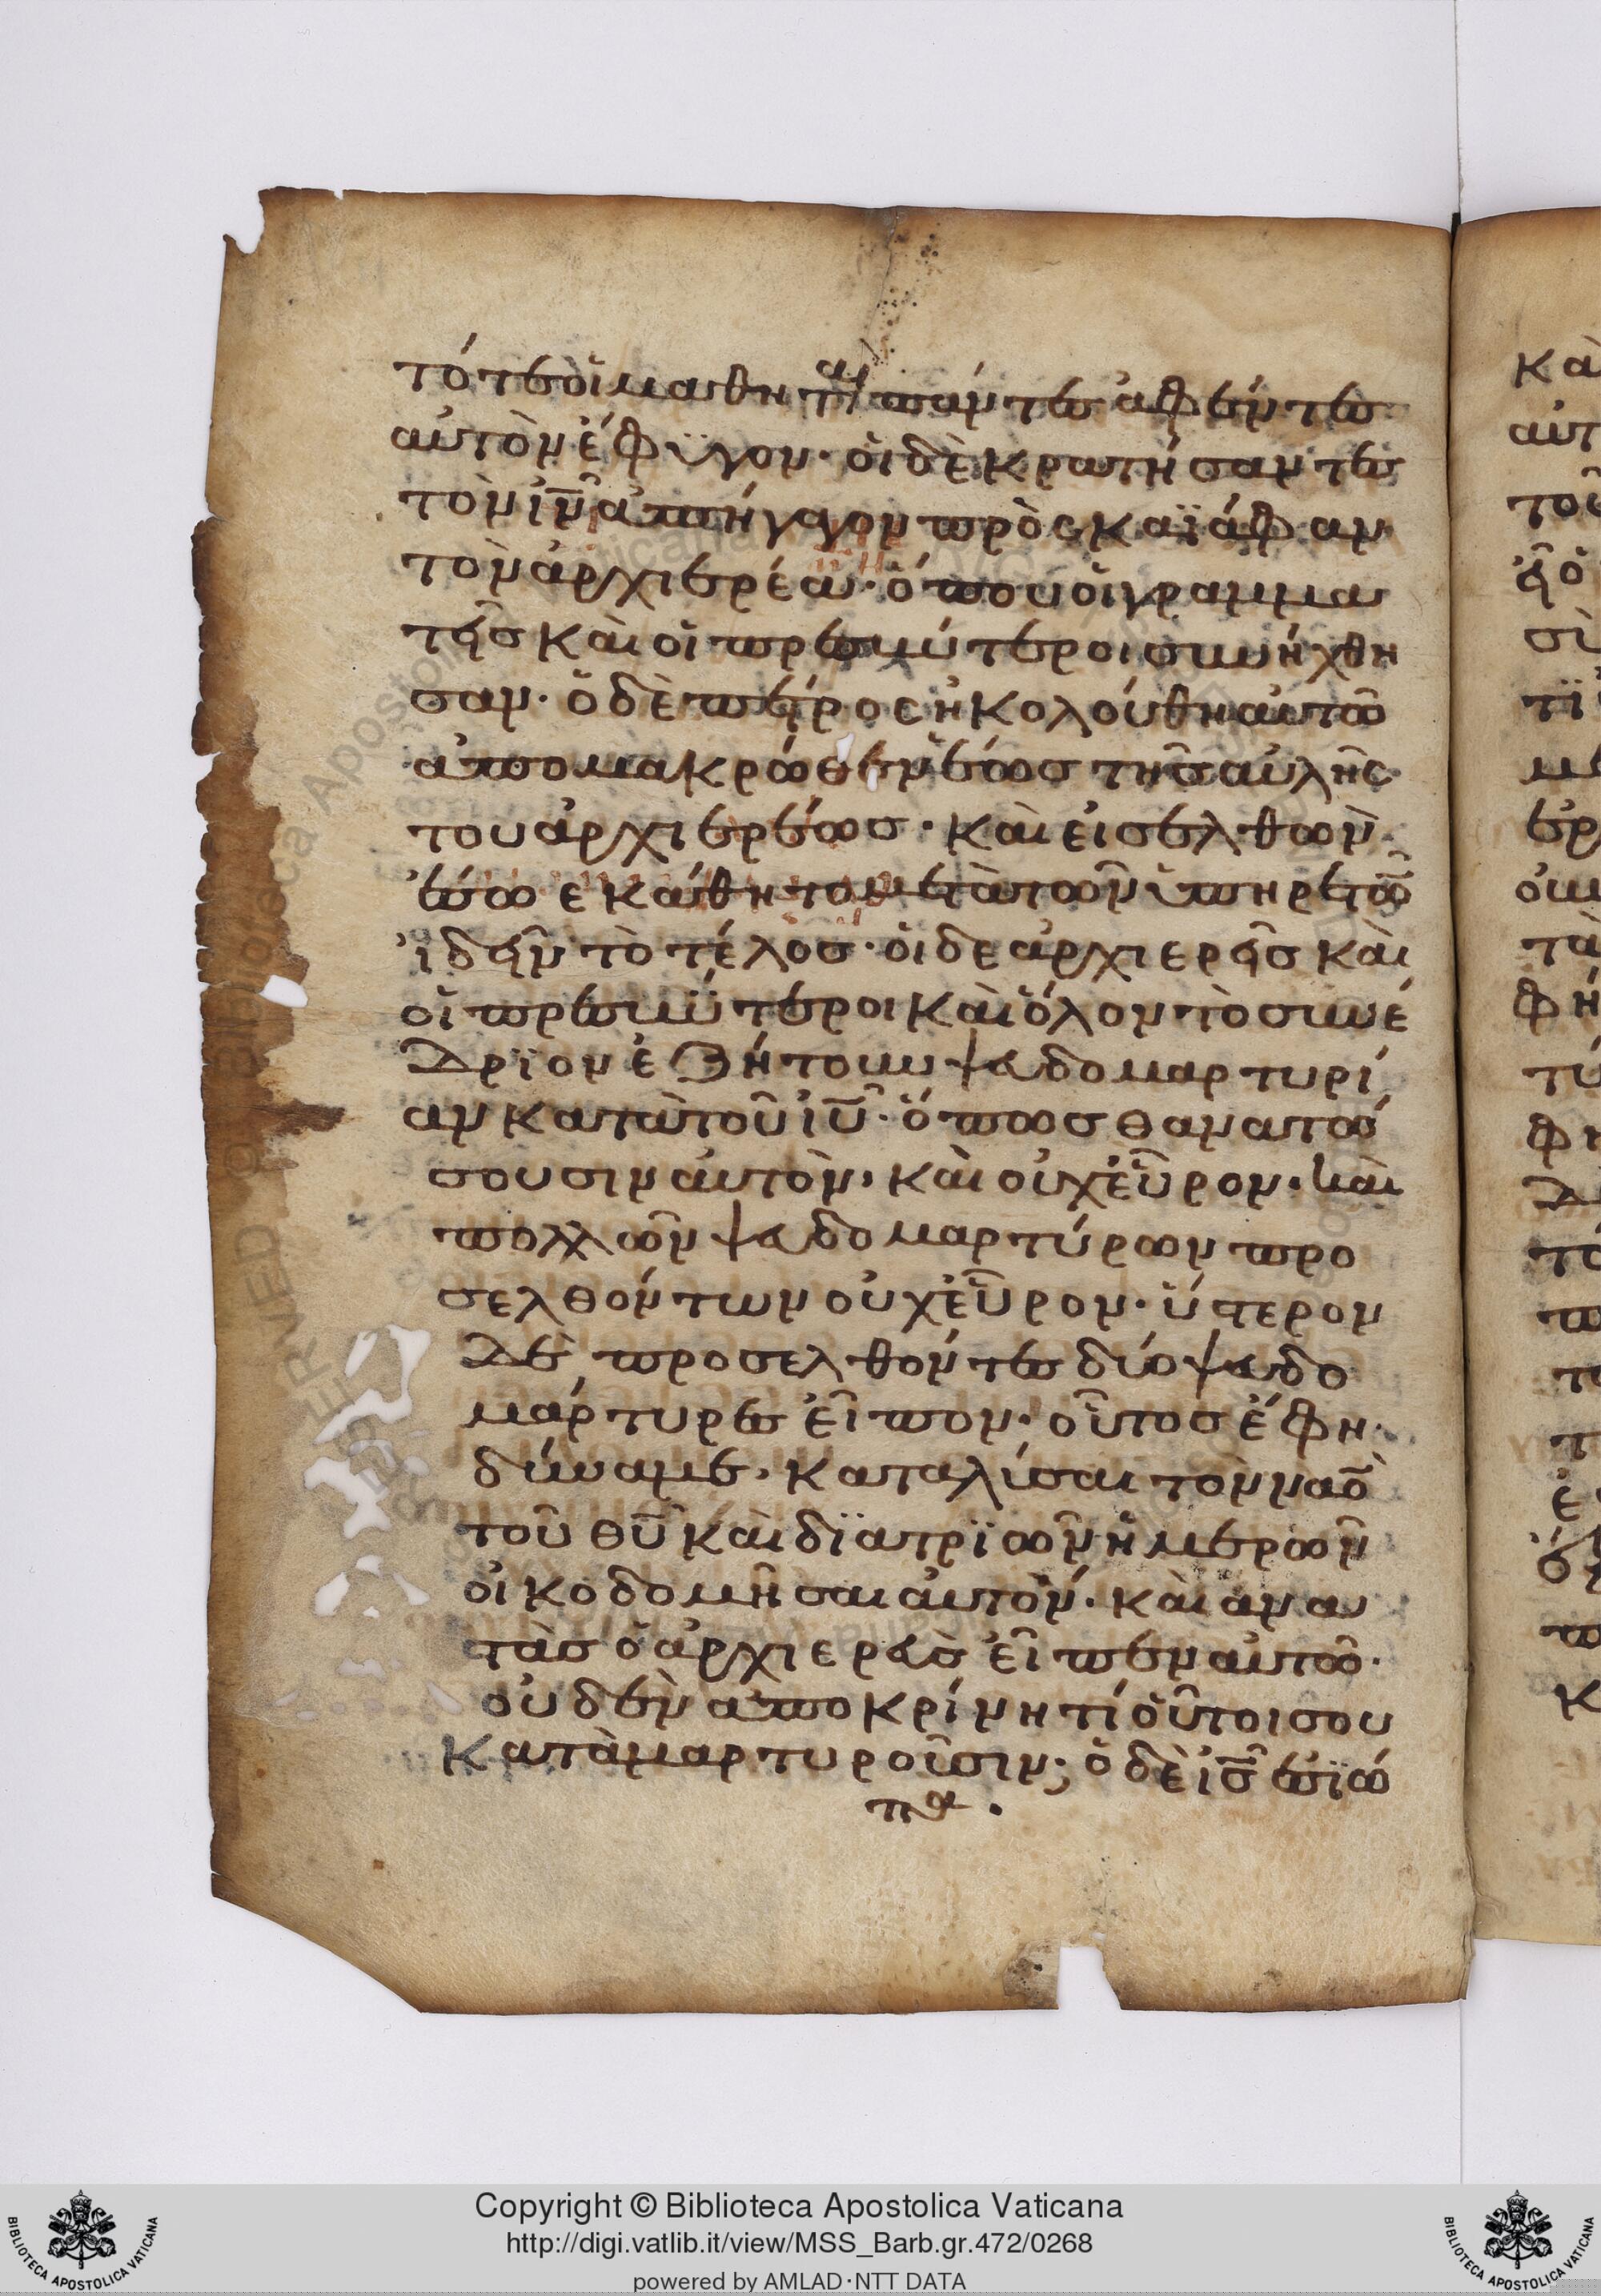 τότε οἱ μαθηταὶ πάντες ἀφέντες
αὐτὸν ἔφϋγον· οἱ δὲ κρατήσαντες
τὸν ἰν̅ ἀπήγαγον πρὸς καϊάφαν
τὸν ἀρχιερέα· ὅπου οἱ γραμμα
τεῖς καὶ οἱ πρεσβύτεροι συνήχθη
σαν· ὁ δὲ πέτρος ἠκολούθη αὐτῶ
ἀπο μακρώθεν ἕως τῆς αὐλῆς
του ἀρχιερέως· καὶ εἰσελθὼν
ἔσω εκάθητο μετὰ τῶν ὑπηρετῶ̅
ἰδεῖν τὸ τέλος· οἱ δε ἀρχιερεῖς καὶ
οἱ πρεσβΰτεροι καὶ ὅλον τὸ συνέ
δρϊον ἐζήτουν ψευδομαρτυρί
αν κατὰ τοῦ ἰυ̅· ὅπως θανατώ
σουσιν αὐτὸν· καὶ οὐχ εὗρον· καὶ
πολλῶν ψευδομαρτύρων προ
σελθόντων οὐχ εὗρον· ὕστερον
δὲ προσελθόντες δύο ψευδο
μάρτυρες εἶπον· οὗτος ἔφη·
δύναμε· καταλύσαι τὸν ναο̅
τοῦ θυ̅ καὶ δϊα τρϊῶν ἡμερῶν
οἰκοδομῆσαι αὐτόν· καὶ ανα
στὰς ὁ ἀρχιερεὺς εἶπεν αὐτῶ·
οὐδὲν αποκρίνη τί οὗτοι σου
καταμαρτυροῦσιν; ὁ δὲ ις̅ ἐσϊώ
πα·
Κα
αὐτ
το
ὁ
σὺ
τϊ
με
ερ
ουν
τα
φή
τύ
φη
δ
τό
π
το
τ
ἐ
π
κ
Copyright © Biblioteca Apostolica Vaticana
http://digi.vatlib.it/view/MSS_Barb.gr.472/0268
powered by AMLAD·NTT DATA
BIBLIOTECA APOSTOLICA VATICANA
BIBLIOTECA APOSTOLICA VATICANA